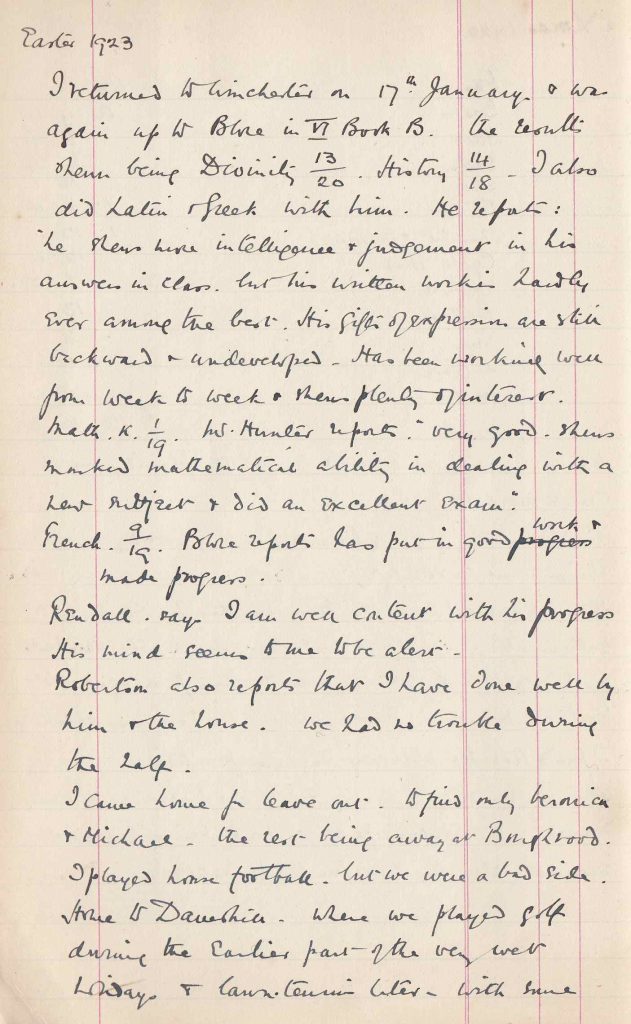 Easter 1923
I returned to Winchester on 17th January. & was
again up to Blore in VI Book B. the results
shewn being Divinity 13/20. History 14/18 - I also
did Latin & Greek with him. He reports:
"he shews more intelligence & judgement in his
answers in class. but his written work is hardly
ever among the best. His gifts of expression are still
backward & undeveloped - Has been working well
from week to week & shews plenty of interest.
Math. K. 1/19. Mr. Hunter reports. "very good. shews
marked mathematical ability in dealing with a
new subject & did an excellent exam".
French. 9/19. Blore reports has put in good progress work &
made progress.
Rendall. says I am well content with his progress
His mind seems to me to be alert -
Robertson also reports that I have done well by
him & the house. We had no trouble during
the half.
I came home for leave out. to find only Veronica
& Michael - the rest being away at Boughrood.
I played house football. but we were a bad side.
Home to Daneshill - where we played golf
during the earlier part of the very wet
holidays & lawn-tennis later - with some